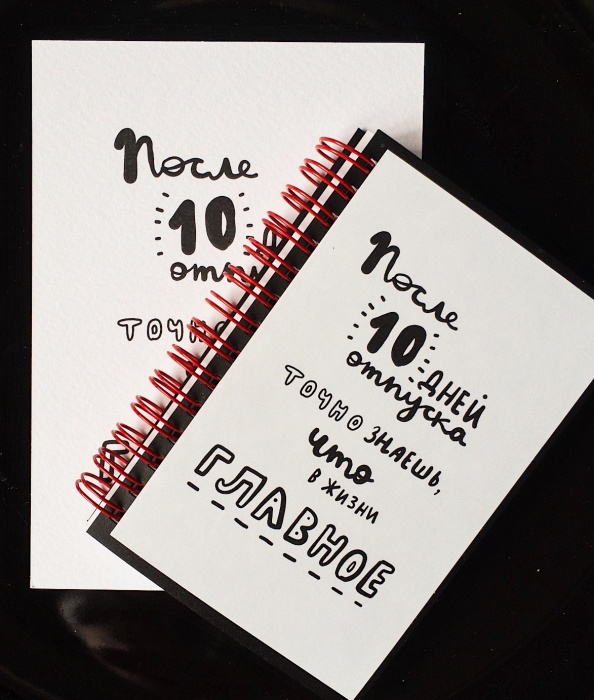 После
10
отпу
точно
После
10 ДНЕЙ
отпуска
ТОЧНО ЗНАЕШЬ,
что
В ЖИЗНИ
ГЛАВНОЕ